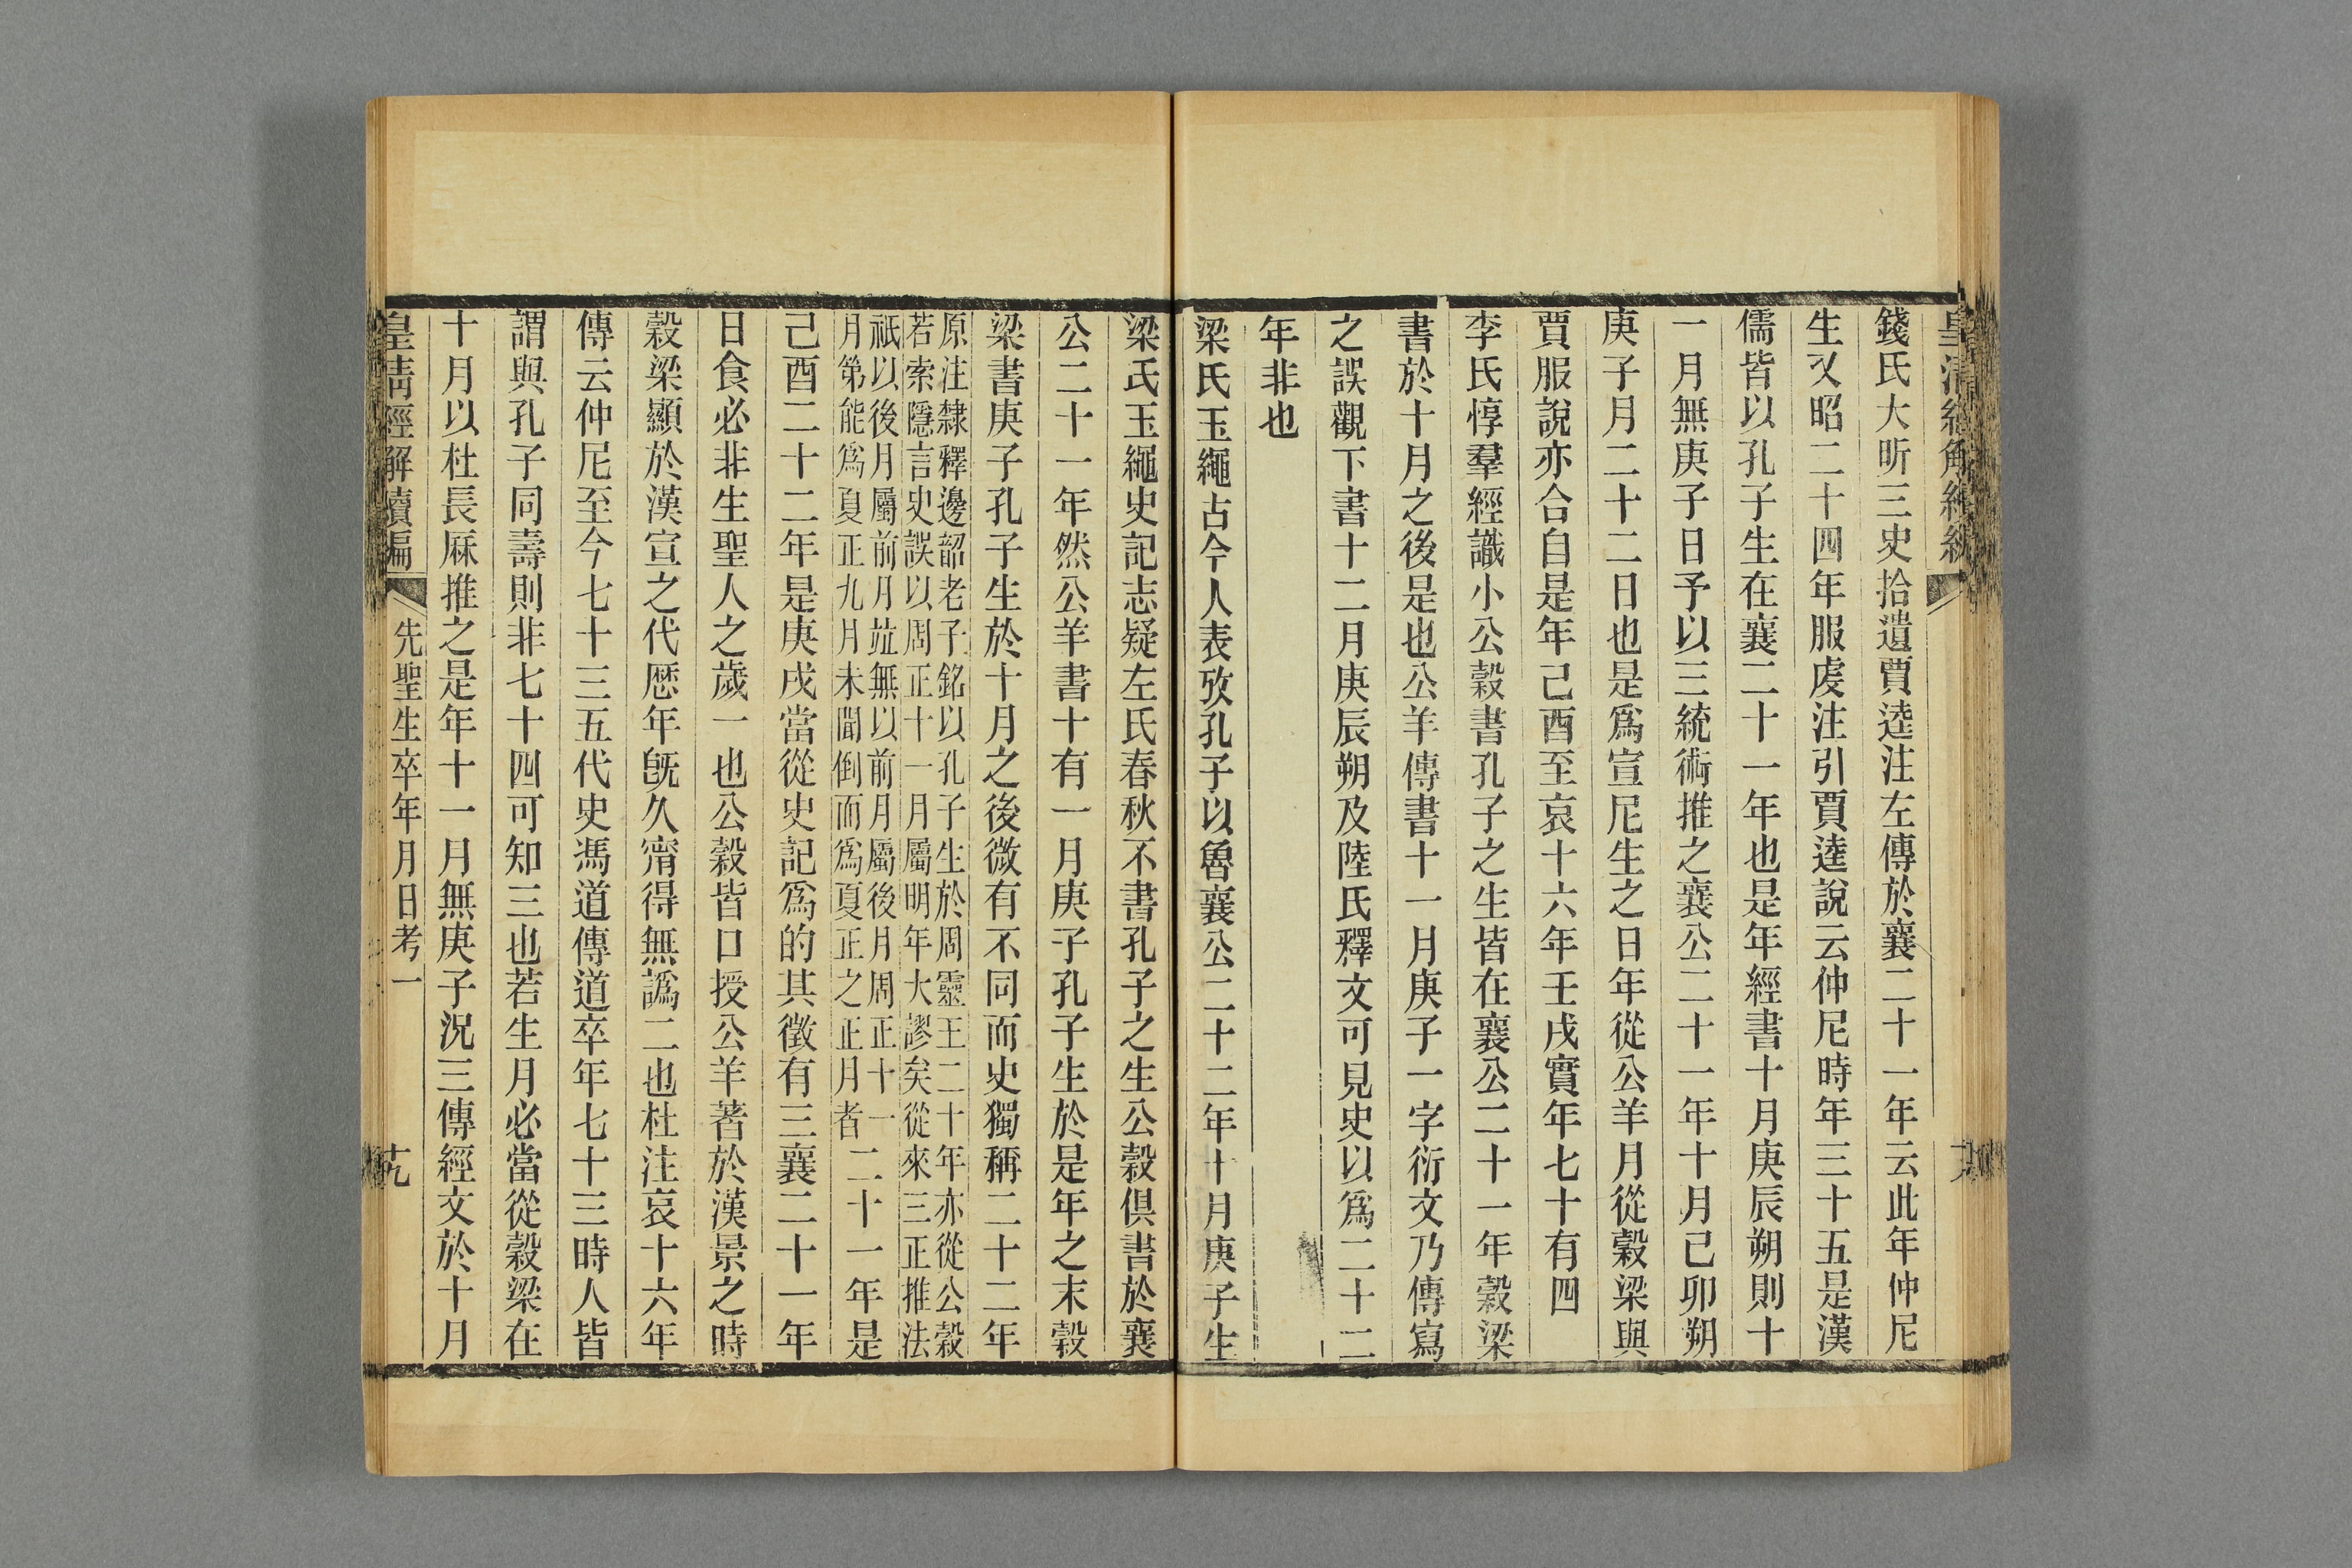 錢氏大昕三史拾遺賈逵注左傳於襄二十一年云此年仲尼
生又昭二十四年服虔注引賈逵說云仲尼時年三十五是漢
儒皆以孔子生在襄二十一年也是年經書十月庚辰朔則十
一月無庚子日予以三統術推之襄公二十一年十月己卯朔
庚子月二十二日也是爲宣尼生之日年從公羊月從穀梁與
賈服說亦合自是年己酉至哀十六年壬戌實年七十有四
李氏惇羣經識小公穀書孔子之生皆在襄公二十一年穀梁
書於十月之後是也公羊傳書十一月庚子一字衍文乃傳寫
之誤觀下書十二月庚辰朔及陸氏釋文可見史以爲二十二
年非也
梁氏玉繩古今人表攷孔子以魯襄公二十二年十月庚子生
梁氏玉繩史記志疑左氏春秋不書孔子之生公穀俱書於襄
公二十一年然公羊書十有一月庚子孔子生於是年之末穀
梁書庚子孔子生於十月之後微有不同而史獨稱二十二年
原注隸釋邊韶老子銘以孔子生於周靈王二十年亦從公穀
若索隱言史誤以周正十一月屬明年大謬矣從來三正推法
祗以後月屬前月竝無以前月屬後月周正十一
月第能爲夏正九月未聞倒而爲夏正之正月者
二十一年是
己酉二十二年是庚戌當從史記爲的其徵有三襄二十一年
日食必非生聖人之歲一也公穀皆口授公羊著於漢景之時
穀梁顯於漢宣之代歷年旣久甯得無譌二也杜注哀十六年
傳云仲尼至今七十三五代史馮道傳道卒年七十三時人皆
謂與孔子同壽則非七十四可知三也若生月必當從穀梁在
十月以杜長厤推之是年十一月無庚子況三傳經文於十月
皇淸經解續編
先聖生卒年月日考一